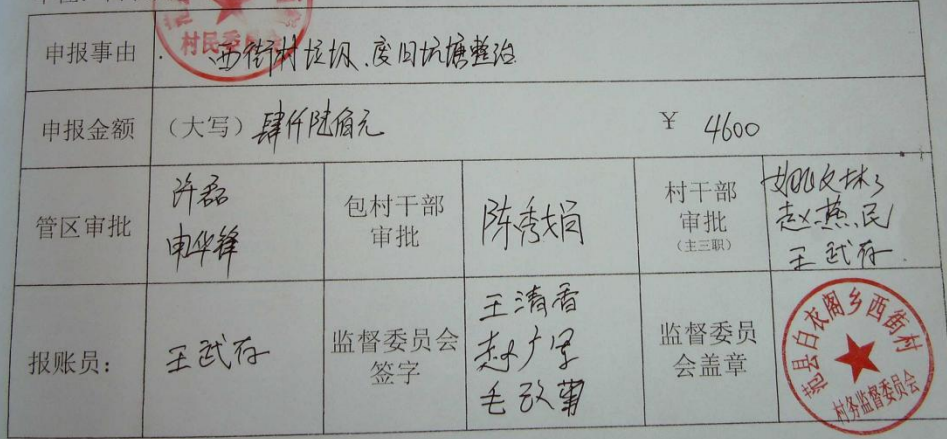 村民委员会
申报事由
西街村垃圾、废旧坑塘整治
申报金额
（大写）肆仟陆佰元
¥ 4600
管区审批
许磊
申华锋
包村干部
审批
陈秀娟
村干部
审批
（主三职）
赵燕民
王武存
报账员：
王武存
监督委员会
签字
王清香
赵广军
毛改菊
监督委员
会盖章
范县白衣阁乡西街村
村务监督委员会